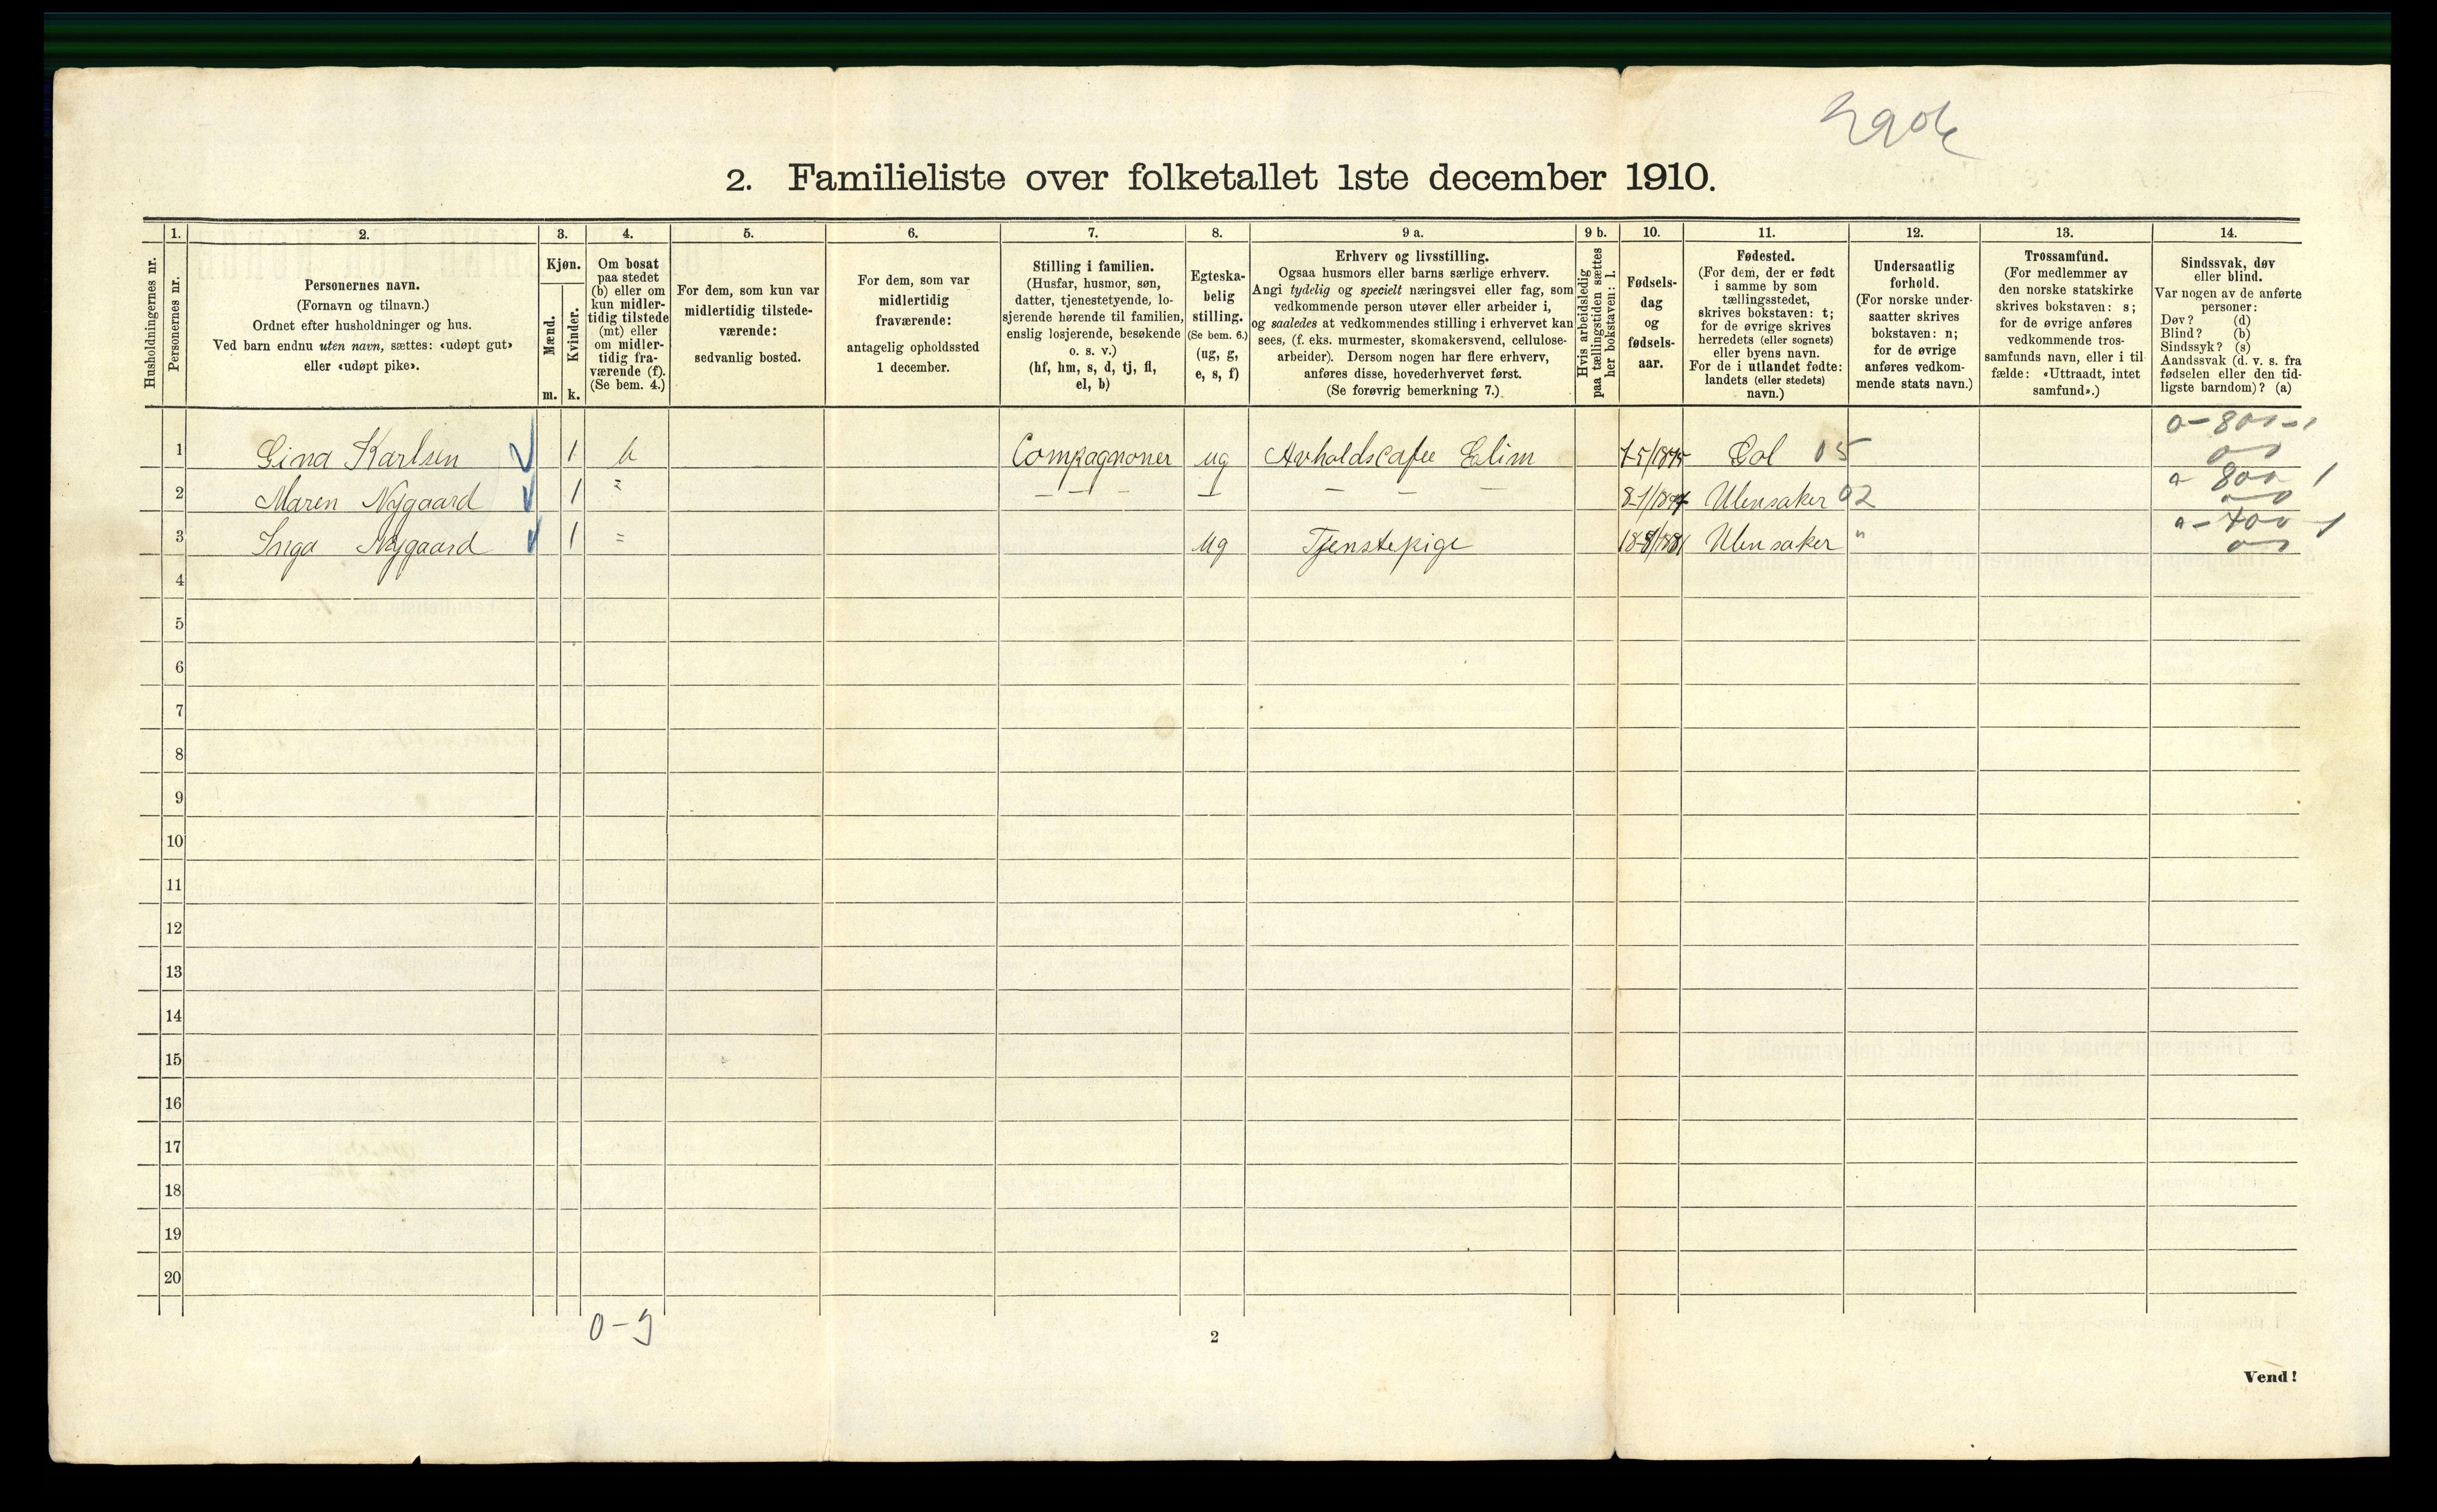 2. Familieliste over folketallet 1ste december 1910.
Husholdningernes nr.
1.
Personernes nr.
2.
Personernes navn.
(Fornavn og tilnavn.)
Ordnet efter husholdninger og hus.
Ved barn endnu uten navn, sættes: «udøpt gut»
eller «udøpt pike».
3.
Kjøn.
Mænd.
Kvinder.
m. k.
4.
Om bosat
paa stedet
(b) eller om
kun midler-
tidig tilstede
(mt) eller
om midler-
tidig fra-
værende (f).
(Se bem. 4.)
5.
For dem, som kun var
midlertidig tilstede-
værende:
sedvanlig bosted.
6.
For dem, som var
midlertidig
fraværende:
antagelig opholdssted
1 december.
7.
Stilling i familien.
(Husfar, husmor, søn,
datter, tjenestetyende, lo-
sjerende hørende til familien,
enslig losjerende, besøkende
o. s. v.)
(hf, hm, s, d, tj, fl,
el, b)
8.
Egteska-
belig
stilling.
(Se bem. 6.)
(ug, g,
e, s, f)
9 a.
Erhverv og livsstilling.
Ogsaa husmors eller barns særlige erhverv.
Angi tydelig og specielt næringsvei eller fag, som
vedkommende person utøver eller arbeider i,
og saaledes at vedkommendes stilling i erhvervet kan
sees, (f. eks. murmester, skomakersvend, cellulose-
arbeider). Dersom nogen har flere erhverv,
anføres disse, hovederhvervet først.
(Se forøvrig bemerkning 7.)
9 b.
Hvis arbeidsledig
paa tællingstiden sættes
her bokstaven: l.
10.
Fødsels-
dag
og
fødsels-
aar.
11.
Fødested.
(For dem, der er født
i samme by som
tællingsstedet,
skrives bokstaven: t;
for de øvrige skrives
herredets (eller sognets)
eller byens navn.
For de i utlandet fødte:
landets (eller stedets)
navn.)
12.
Undersaatlig
forhold.
(For norske under-
saatter skrives
bokstaven: n;
for de øvrige
anføres vedkom-
mende stats navn.)
13.
Trossamfund.
(For medlemmer av
den norske statskirke
skrives bokstaven: s;
for de øvrige anføres
vedkommende tros-
samfunds navn, eller i til-
fælde: «Uttraadt, intet
samfund».)
14.
Sindssvak, døv
eller blind.
Var nogen av de anførte
personer:
Døv? (d)
Blind? (b)
Sindssyk? (s)
Aandssvak (d. v. s. fra
fødselen eller den tid-
ligste barndom)? (a)
1 Gina Karlsen 1 b Compagnoner ug Avholdscafee Elim 7-5/1875 Gol 05 0-800-1
2 Maren Nygaard 1 = - - - - - - - Ulensaker 02 0-800 1
3 Inga Nygaard 1 = ug Tjenstepige Ulensaker " 0-400-1
4
5
6
7
8
9
10
11
12
13
14
15
16
17
18
19
20
0-3
2
Vend!